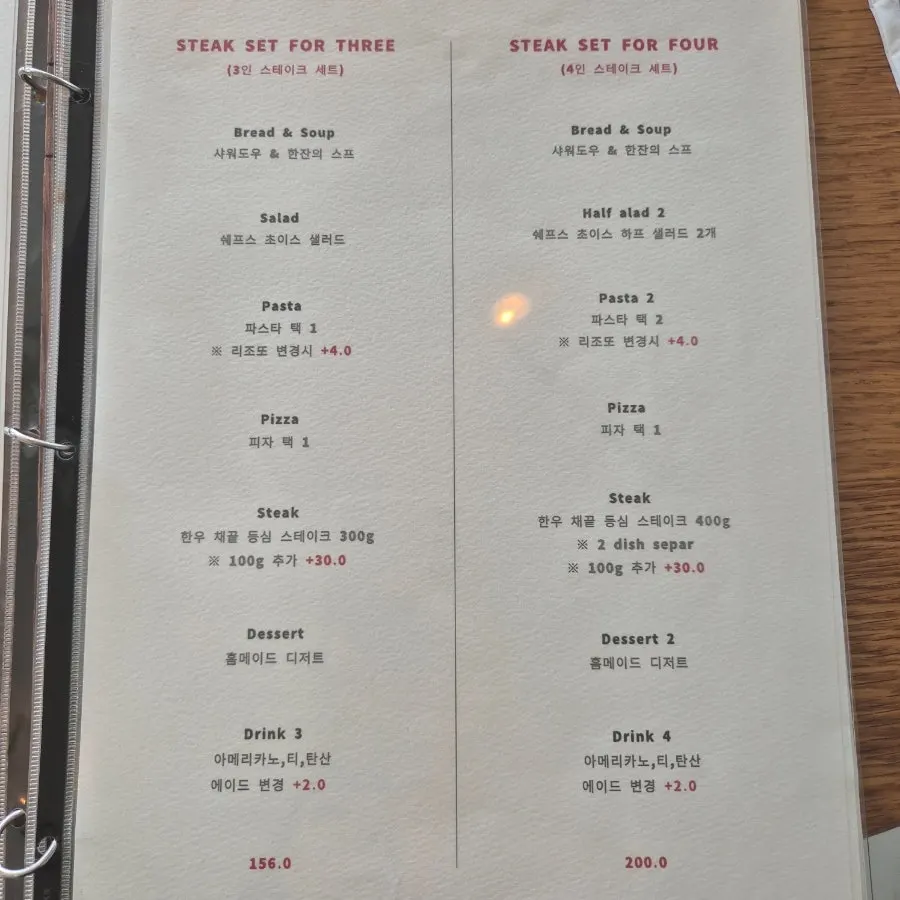 STEAK SET FOR THREE
(3인 스테이크 세트)
Bread & Soup
샤워도우 & 한잔의 스프
Salad
쉐프스 초이스 샐러드
Pasta
파스타 택 1
※ 리조또 변경시 +4.0
Pizza
피자 택 1
Steak
한우 채끝 등심 스테이크 300g
※ 100g 추가 +30.0
Dessert
홈메이드 디저트
Drink 3
아메리카노,티,탄산
에이드 변경 +2.0
156.0
STEAK SET FOR FOUR
(4인 스테이크 세트)
Bread & Soup
샤워도우 & 한잔의 스프
Half alad 2
쉐프스 초이스 하프 샐러드 2개
Pasta 2
파스타 택 2
※ 리조또 변경시 +4.0
Pizza
피자 택 1
Steak
한우 채끝 등심 스테이크 400g
※ 2 dish separ
※ 100g 추가 +30.0
Dessert 2
홈메이드 디저트
Drink 4
아메리카노,티,탄산
에이드 변경 +2.0
200.0